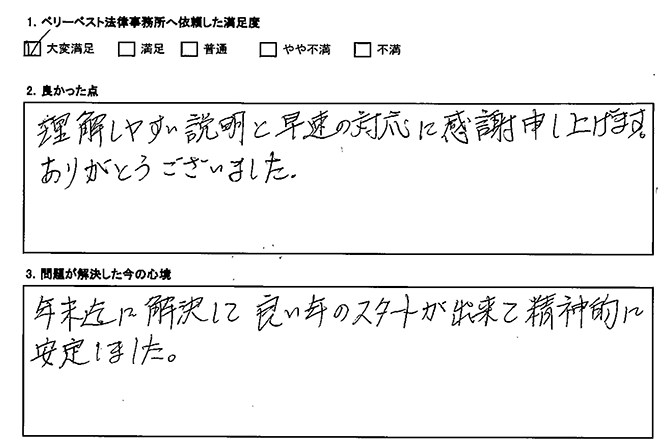 1. ベリーベスト法律事務所へ依頼した満足度
☑ 大変満足 □ 満足 □ 普通 □ やや不満 □ 不満
2. 良かった点
理解しやすい説明と早速の対応に感謝申し上げます。
ありがとうございました.
3. 問題が解決した今の心境
年末迄に解決して良い年のスタートが出来て精神的に
安定しました。